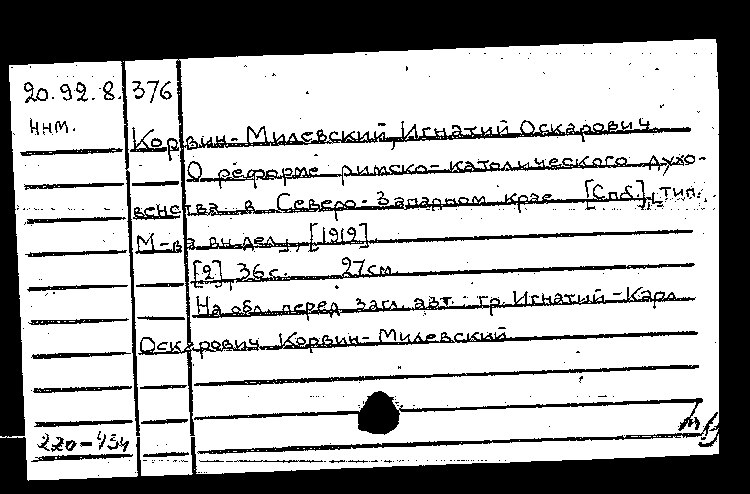 20.92.8. 376
ннт.
Корвин-Милевский, Игнатий Оскарович
О реформе римско-католического духо-
венства в Северо-Западном крае [Спб], тип.
М-ва вн. дел, [1912]
[2], 36 с. 27 см.
На обл. перед загл. авт.: гр. Игнатий-Карл
Оскарович Корвин-Милевский
220-434